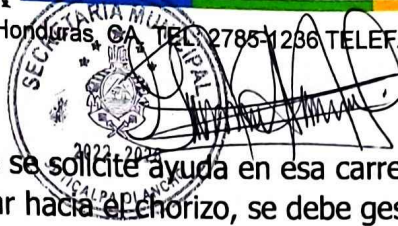 Honduras, CA TEL: 2785-1236 TELEFA
SECRETARIA MUNICIPAL
2022-2026
se solicite ayuda en esa carre
ar hacia el chorizo, se debe ges